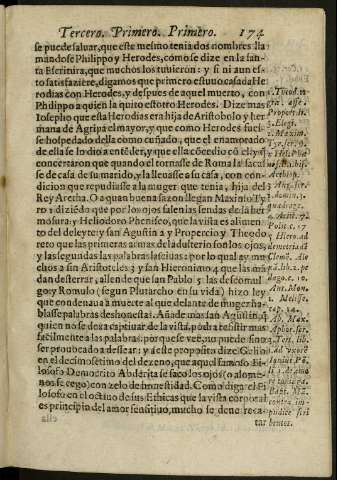 Tercero. Primero. Primero. 174
se puede saluar, que este mesmo tenia dos nombres lla
mandose Philippo y Herodes, como se dize en la san-
ta Escritura, que muchos los tuuieron: y si ni aun es-
to satisfaziere, digamos que primero estuuo casada He
rodias con Herodes, y despues de aquel muerto, con
Philippo a quien la quito estotro Herodes. Dize mas
Iosepho que esta Herodias era hija de Aristobolo y her
mana de Agripa el mayor, y que como Herodes fues-
se hospedado della como cuñado, que el enamorado
de ella se lo dio a entēder, y que ella cōcedio cō el, y
concertaron que quando el tornasse de Roma la sacas
se de casa de su marido, y la lleuasse a su casa, con con-
dicion que repudiasse a la muger que tenia, hija del
Rey Aretha. O a quan buena sazon llegan Maximo Ty
ro 1 diziēdo que por los ojos salen las sendas de la her
mosura: y Heliodoro Phenisco, que la vista es alimen
to del deleyte: y san Agustin 2 y Propercio y Theodo
reto que las primeras armas del adulterio son los ojos,
y las segundas las palabras lasciuas: por lo qual ay mu
chos a sin Aristoteles 3 y san Hieronimo 4 que las mā
dan desterrar, allende que san Pablo 5 las descomul
go: y Romulo (segun Plutarcho en su vida) hizo ley
que condenaua à muerte al que delante de muger ha-
blasse palabras deshonestas. Añade mas san Agustin, q̄
quien no se dexa captiuar de la vista, podra resistir mas
facilmente a las palabras, porque se vee, no puede sino
ser prouocado a dessear: y a este proposito dize Gelio
en el decimoseptimo del dezeno, que aquel famoso Fi
losofo Democrito Abderita se saco los ojos (o alome-
nos se cego) con zelo de honestidad. Como diga el Fi
losofo en el octauo de sus Ethicas que la vista corporal
es principio del amor sensitiuo, mucho se deue reca-
tar
1. Theod. in
Propert. li.
3. Elegi.
1. Maxim.
Tyr. ser. 9.
2. Aug. ser.
4. Arist. 7.
Polit. c. 17
ad De-
Ant. Mon.
1. Meliss.
Ser.
impudice
bentes.